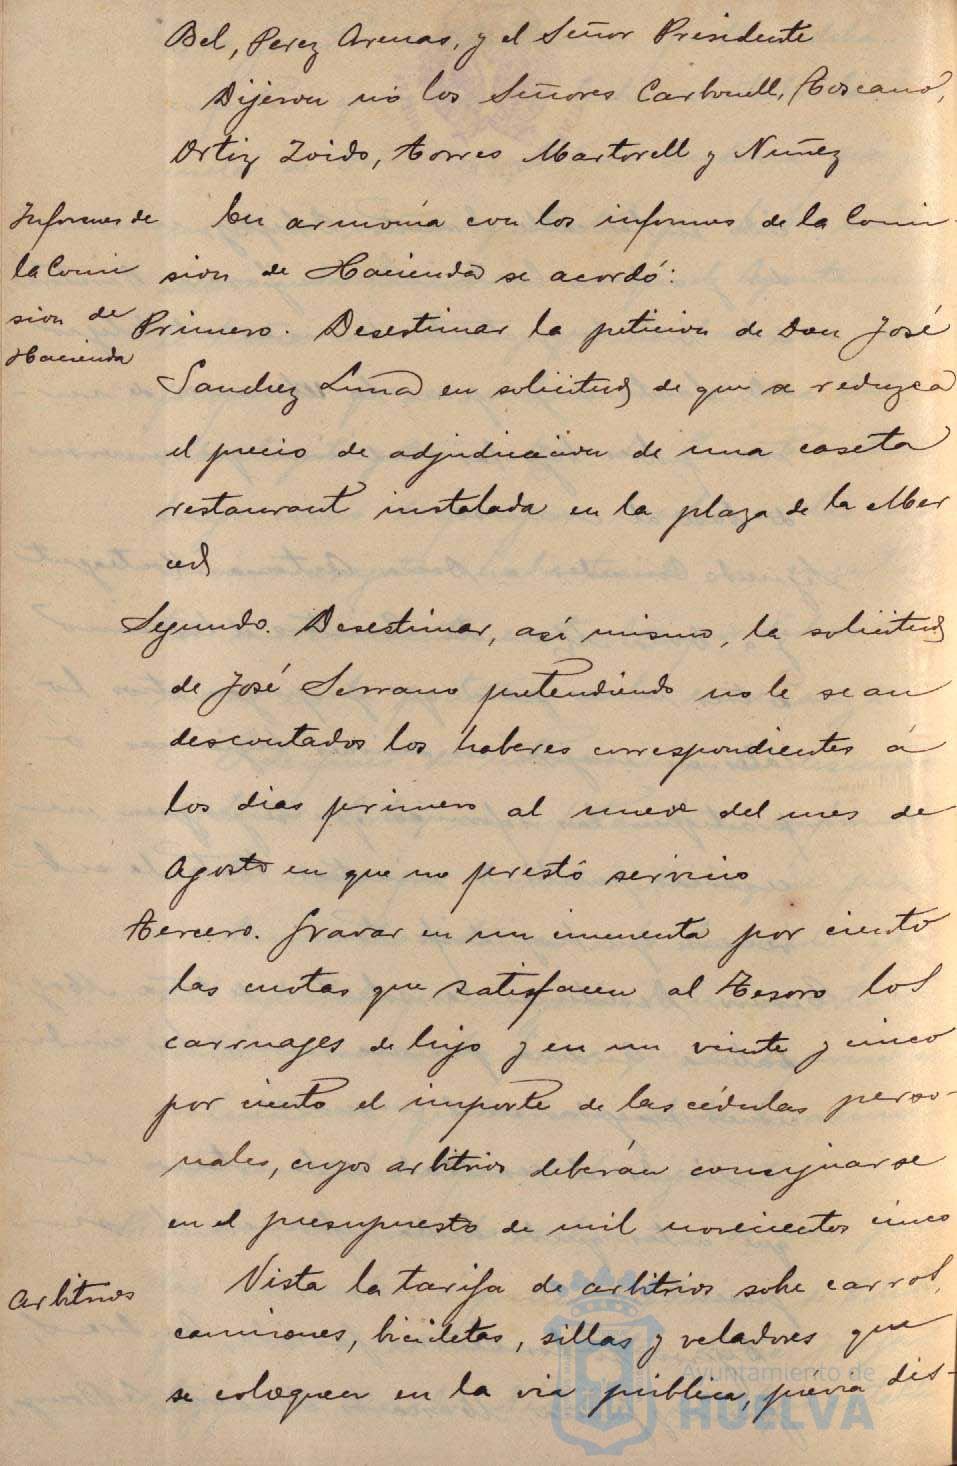 Bel, Perez Arenas, y el Señor Presidente
Dijeron nó los Señores Carbonell, Toscano,
Ortiz Zoido, Torres Martorell y Nuñez
Informes de
la Comi
sion de
Hacienda
En armonía con los informes de la Comi-
sion de Hacienda se acordó:
Primero. Desestimar la peticion de Don José
Sanchez Luna en solicitud de que se reduzca
el precio de adjudicacion de una caseta
restaurant instalada en la plaza de la Mer
ced
Segundo. Desestimar, así mismo, la solicitud
de José Serrano pretendiendo no le sean
descontados los haberes correspondientes á
los dias primero al nueve del mes de
Agosto en que no prestó servicio
Tercero. Gravar en un cincuenta por ciento
las cuotas que satisfacen al Tesoro los
carruages de lujo y en un veinte y cinco
por ciento el importe de las cédulas perso-
nales, cuyos arbitrios deberán consignarse
en el presupuesto de mil novecientos cinco
Arbitrios
Vista la tarifa de arbitrios sobre carros,
camiones, bicicletas, sillas y veladores que
se coloquen en la via pública, prévia dis-
Ayuntamiento de
HUELVA